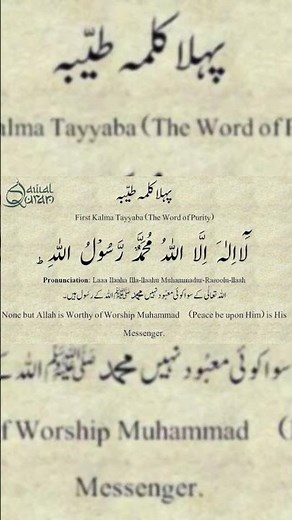 پہلا کلمہ طیّبہ
alma Tayyaba (The Word of P
Qaulal Quran
پہلا کلمہ طیّبہ
First Kalma Tayyaba (The Word of Purity)
لَآ اِلٰهَ اِلَّا اللهُ مُحَمَّدٌ رَّسُوْلُ اللهِ ؕ
Pronunciation: Laaa Ilaaha Illa-llaahu Muhammadur-Rasoolu-llaah
اللہ تعالیٰ کے سوا کوئی معبود نہیں محمد ﷺ اللہ کے رسول ہیں۔
None but Allah is Worthy of Worship Muhammad (Peace be upon Him) is His
Messenger.
سوا کوئی معبود نہیں محمد ﷺ اللہ کے
f Worship Muhammad (
Messenger.